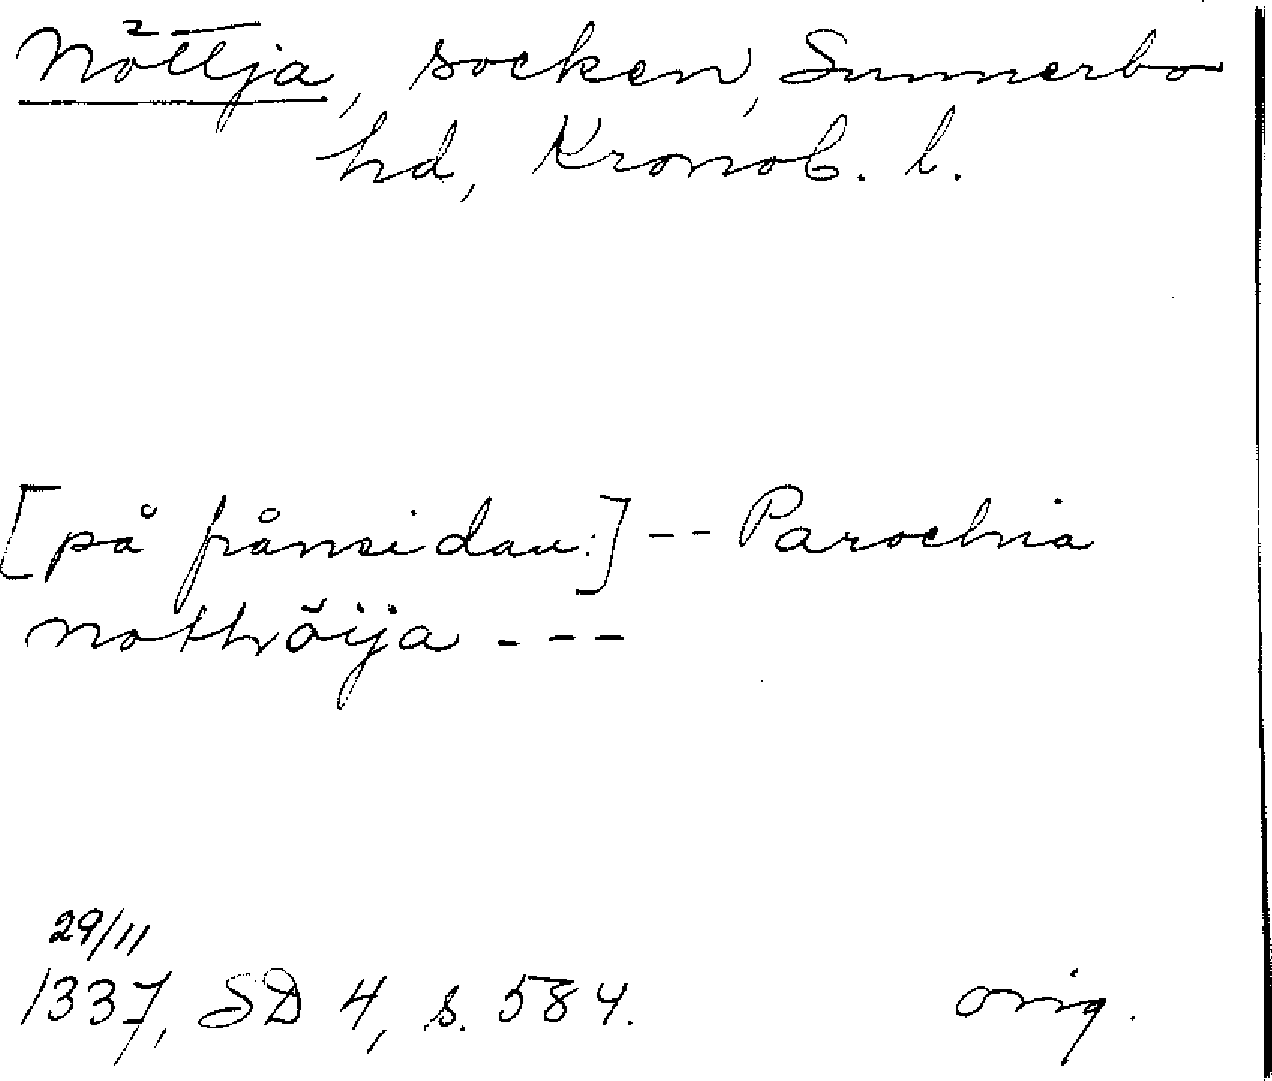 Nöttja, socken, Sunnerbo
hd, Kronob. l.
[på frånsidan:] -- Parochia
nothöija ---
29/11
1337, SD 4, s. 584. orig.